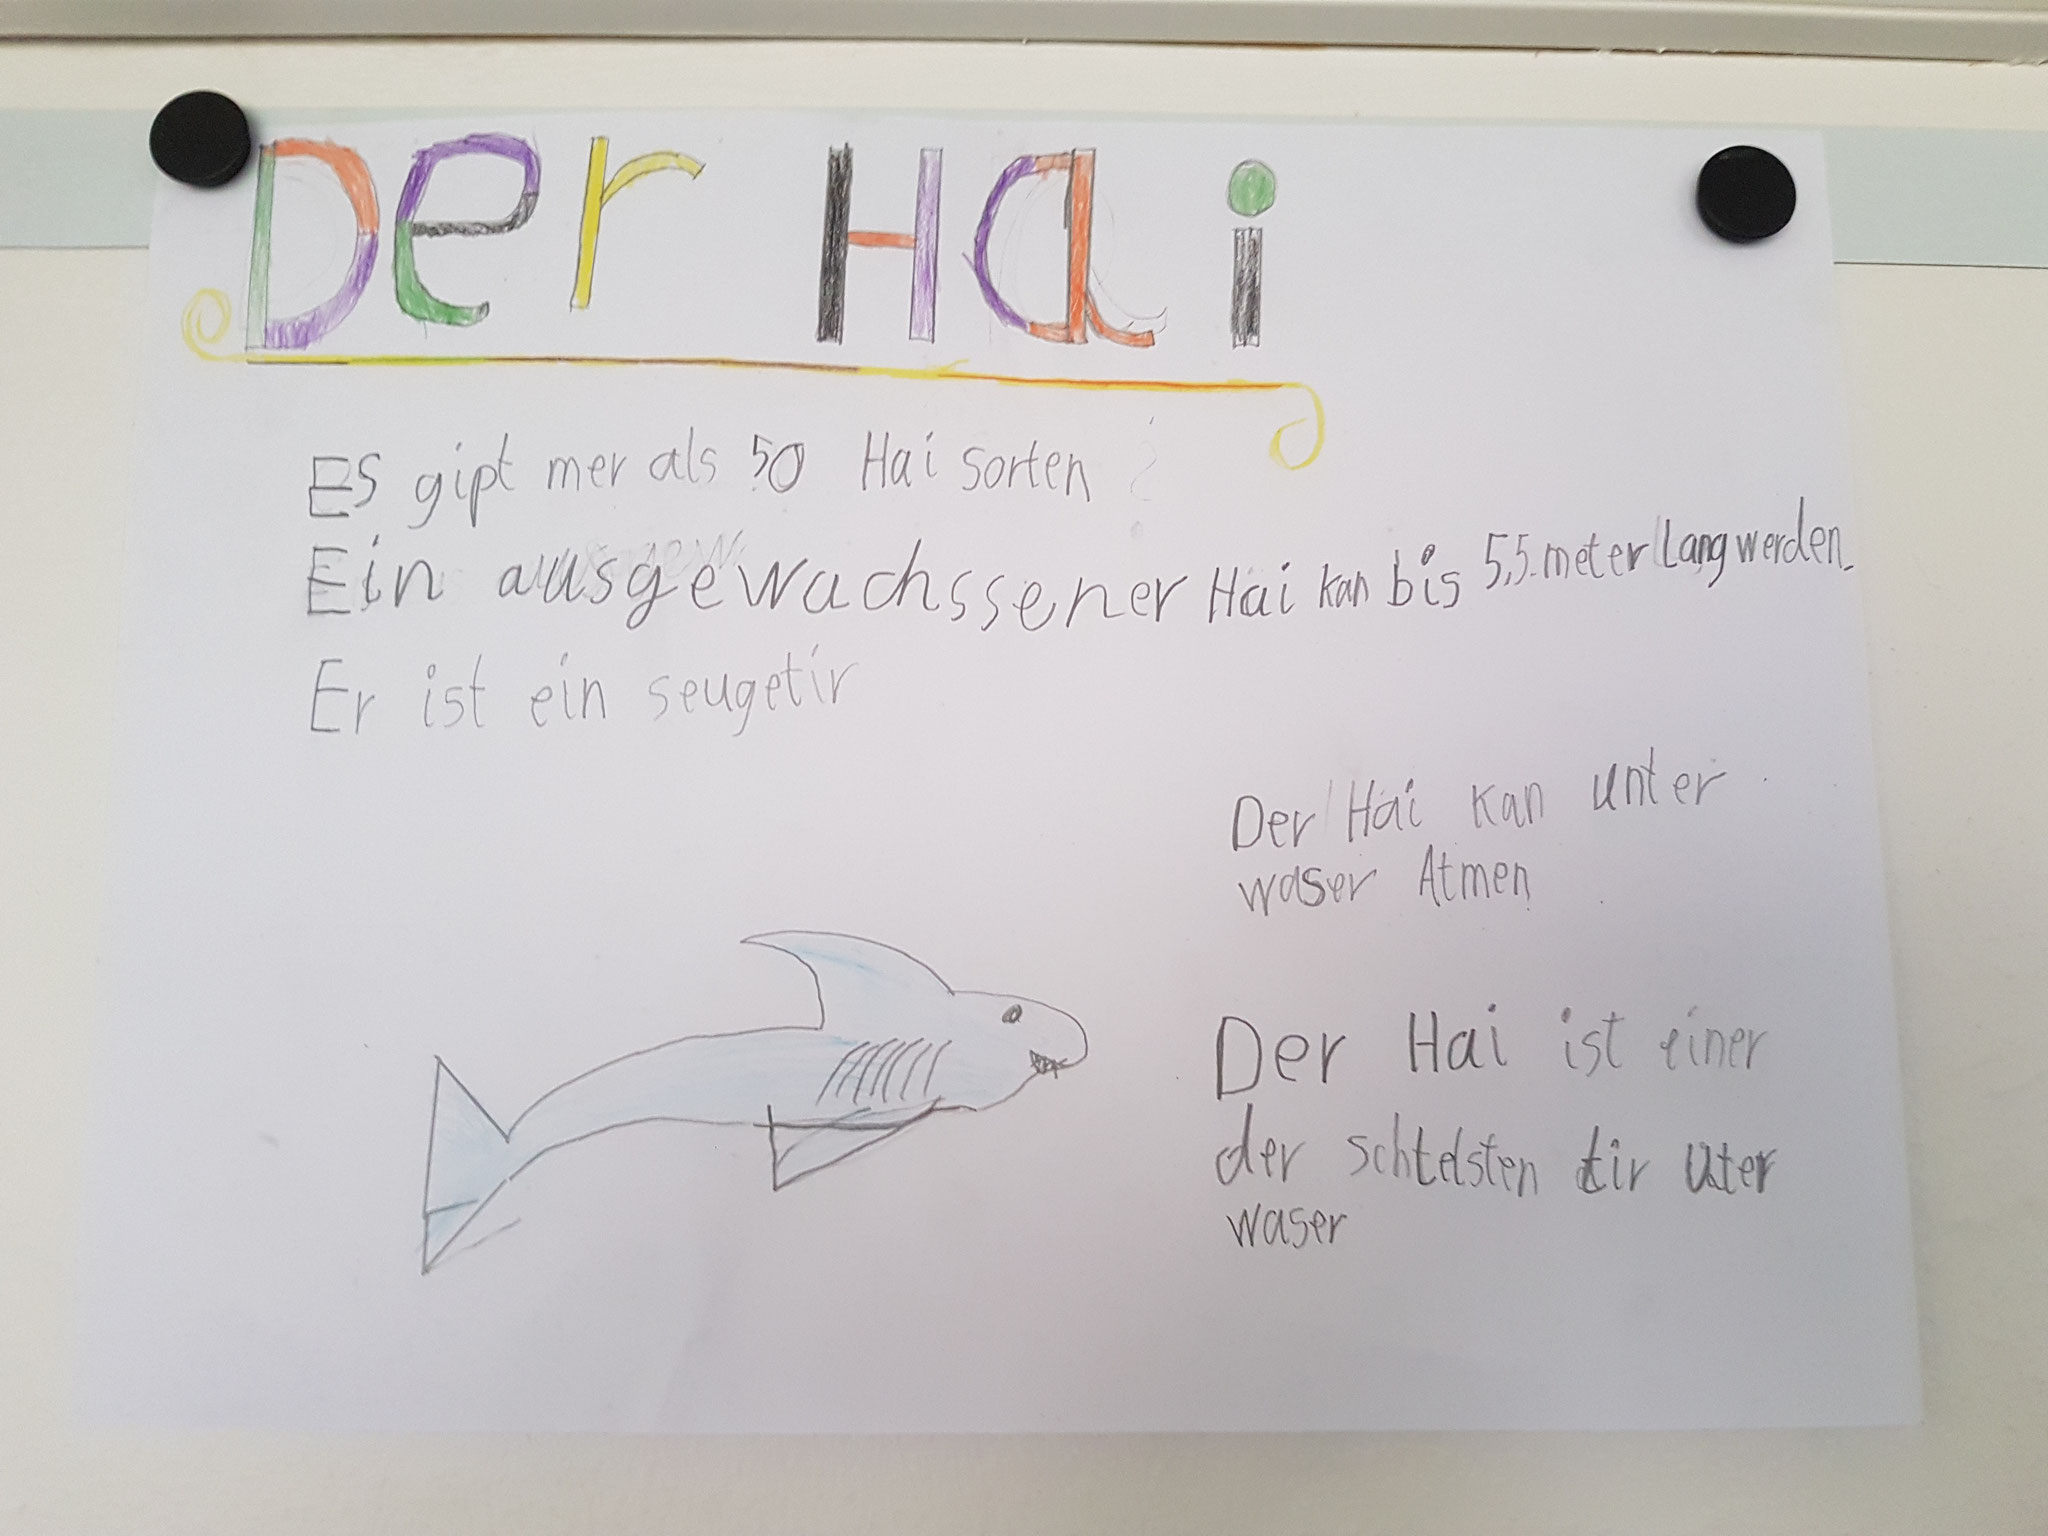 Der Hai
Es gipt mer als 50 Hai sorten
Ein ausgewachssener Hai kan bis 5,5 meter Lang werden.
Er ist ein seugetir
Der Hai kan unter
waser Atmen
Der Hai ist einer
der schtelsten tir uter
waser